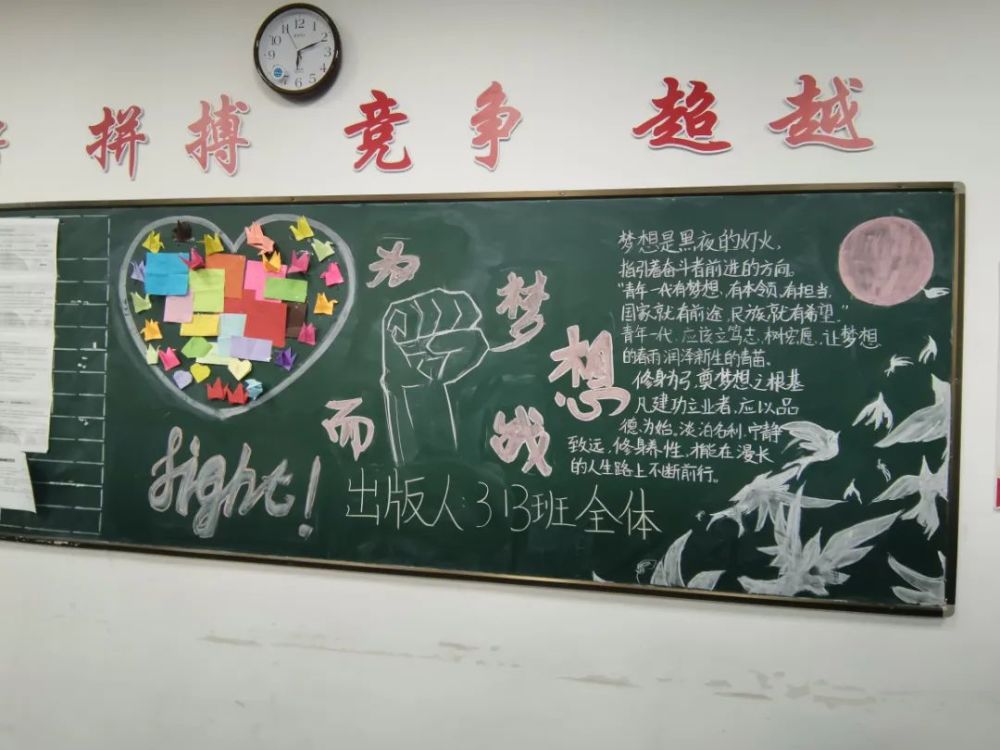 拼搏 竞争 超越
为梦想而战
fight!
梦想是黑夜的灯火，
指引着奋斗者前进的方向。
"青年一代有梦想，有本领，有担当，
国家就有前途，民族就有希望。"
青年一代，应该立笃志，树宏愿，让梦想
的春雨润泽新生的青苗。
修身为弓，奠梦想之根基
凡建功立业者，应以品
德为始，淡泊名利，宁静
致远，修身养性，才能在漫长
的人生路上不断前行。
出版人:313班全体